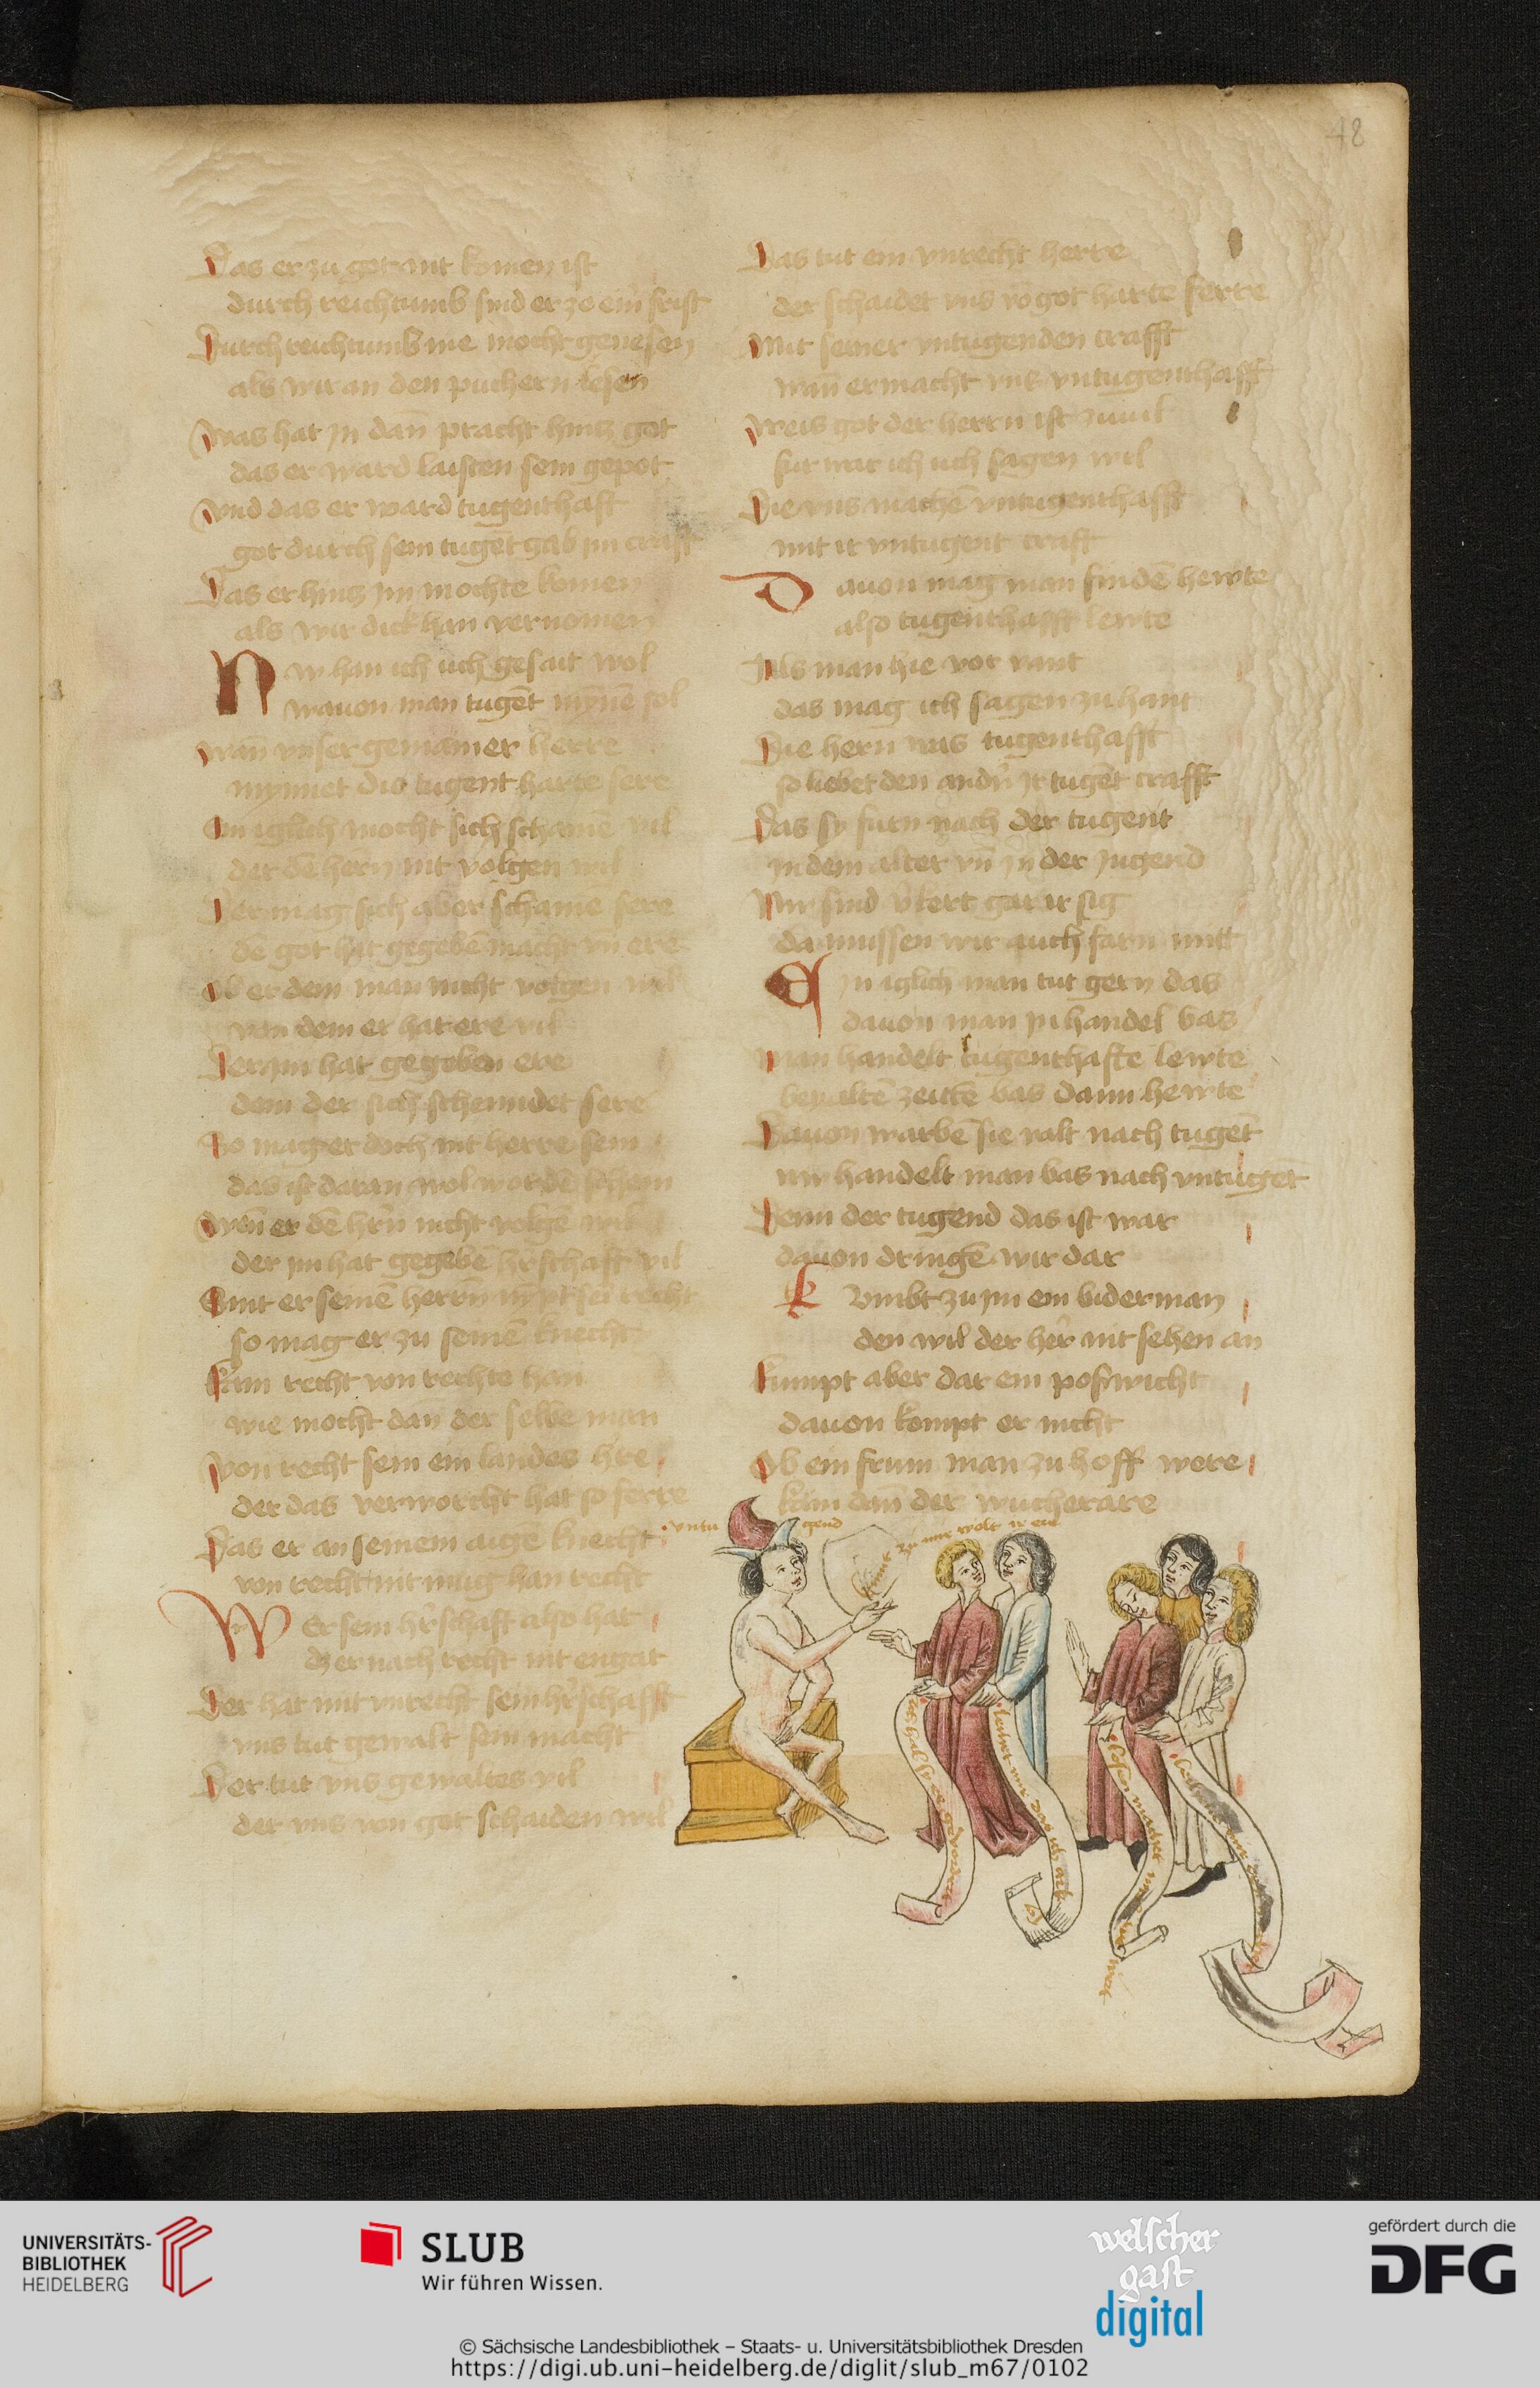 48
Das er zu got nit komen ist
durch reichtumb sind er ze eim frist
Durch reichtumb nie mocht genesen
als wir an den puchern lesen
Was hat jn dan̄ pracht hintz got
das er ward laisten sein gepot
Vnd das er ward tugenthaft
got durch sein tugēt gab im craft
Das er hintz jm mochte komen
als wir dick han vernomen
Nw han ich uch gesait wol
wauon man tugēt mynnē sol
wan̄ vnser gemainer herre
mynnet die tugent harte sere
Ein iglich mocht sich schamē vil
der dē hern nit volgen wil
Der mag sich aber schame sere
dē got hat gegebē macht vn̄ ere
Ob er dem man nicht volgen wil
von dem er hat ere vil
Der jm hat gegeben ere
dem der sich schemidet sere
So mag er doch nit herre sein
das ist daran wol wordē schein
Wen̄ er dē hrn̄ nicht volgē wil
der jm hat gegebē hrschaft vil
so mag er zu seinē knecht
kain recht von rechte han
wie mocht dan der selbe man
Von recht sein ein landes hre
der das verworcht hat so ferre
Das er an seinem aigē knecht
von recht nit mug han recht
Wer sein hrschaft also hat
dz er nach recht nit engat
Der hat mit vnrecht sein hrschafft
vns tut gewalt sein macht
Der tut vns gewaltes vil
der vns von got schaiden wil
Das tut ein vnrecht herre
der schaidet vns vō got harte ferre
Mit seiner vntugenden crafft
wan̄ er macht vns vntugenthafft
Weis got der herrn ist zuuil
fur war ich uch sagen wil
Die vns machē vntugenthafft
mit ir vntugent craft
Dauon mag man findē hewte
also tugenthafft lewte
Als man hie vor vant
das mag ich sagen zuhant
Die hern was tugenthafft
so liebet den andn̄ ir tugēt crafft
Das sy furn nach der tugent
in dem alter vn̄ jn der jugend
Nw sind v̄kert gar ir sig
da mussen wir auch farn mitt
Ein iglich man tut gern das
dauon man jn handel bas
Man handelt tugenthafte lewte
bey altē zeitē bas dann hewte
Dauon warbē sie valt nach tugēt
nw handelt man bas nach vntugēt
Denn der tugend das ist war
dauon dringē wir dar
Kumbt zu jm ein biderman
den wil der her nit sehen an
kumpt aber dar ein poswicht
dauon kompt er nicht
Ob ein frum man zu hoff were
kam dan̄ der wucherare
vntu gend
kume zu mir wolt
UNIVERSITÄTS-
BIBLIOTHEK
HEIDELBERG
SLUB
Wir führen Wissen.
welscher
gast
digital
gefördert durch die
DFG
© Sächsische Landesbibliothek – Staats- u. Universitätsbibliothek Dresden
https://digi.ub.uni-heidelberg.de/diglit/slub_m67/0102